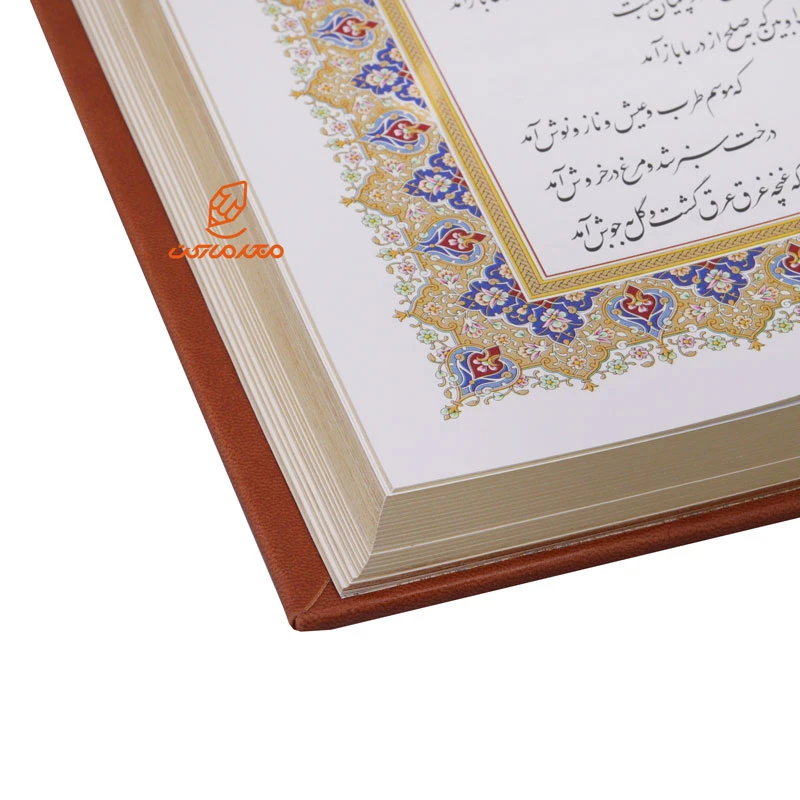 باز آمد
پیمان بشکست
بین که به صلح از در ما باز آمد
که موسم طرب و عیش و ناز و نوش آمد
درخت سبز شد و مرغ در خروش آمد
که غنچه غرق عرق گشت و گل به جوش آمد